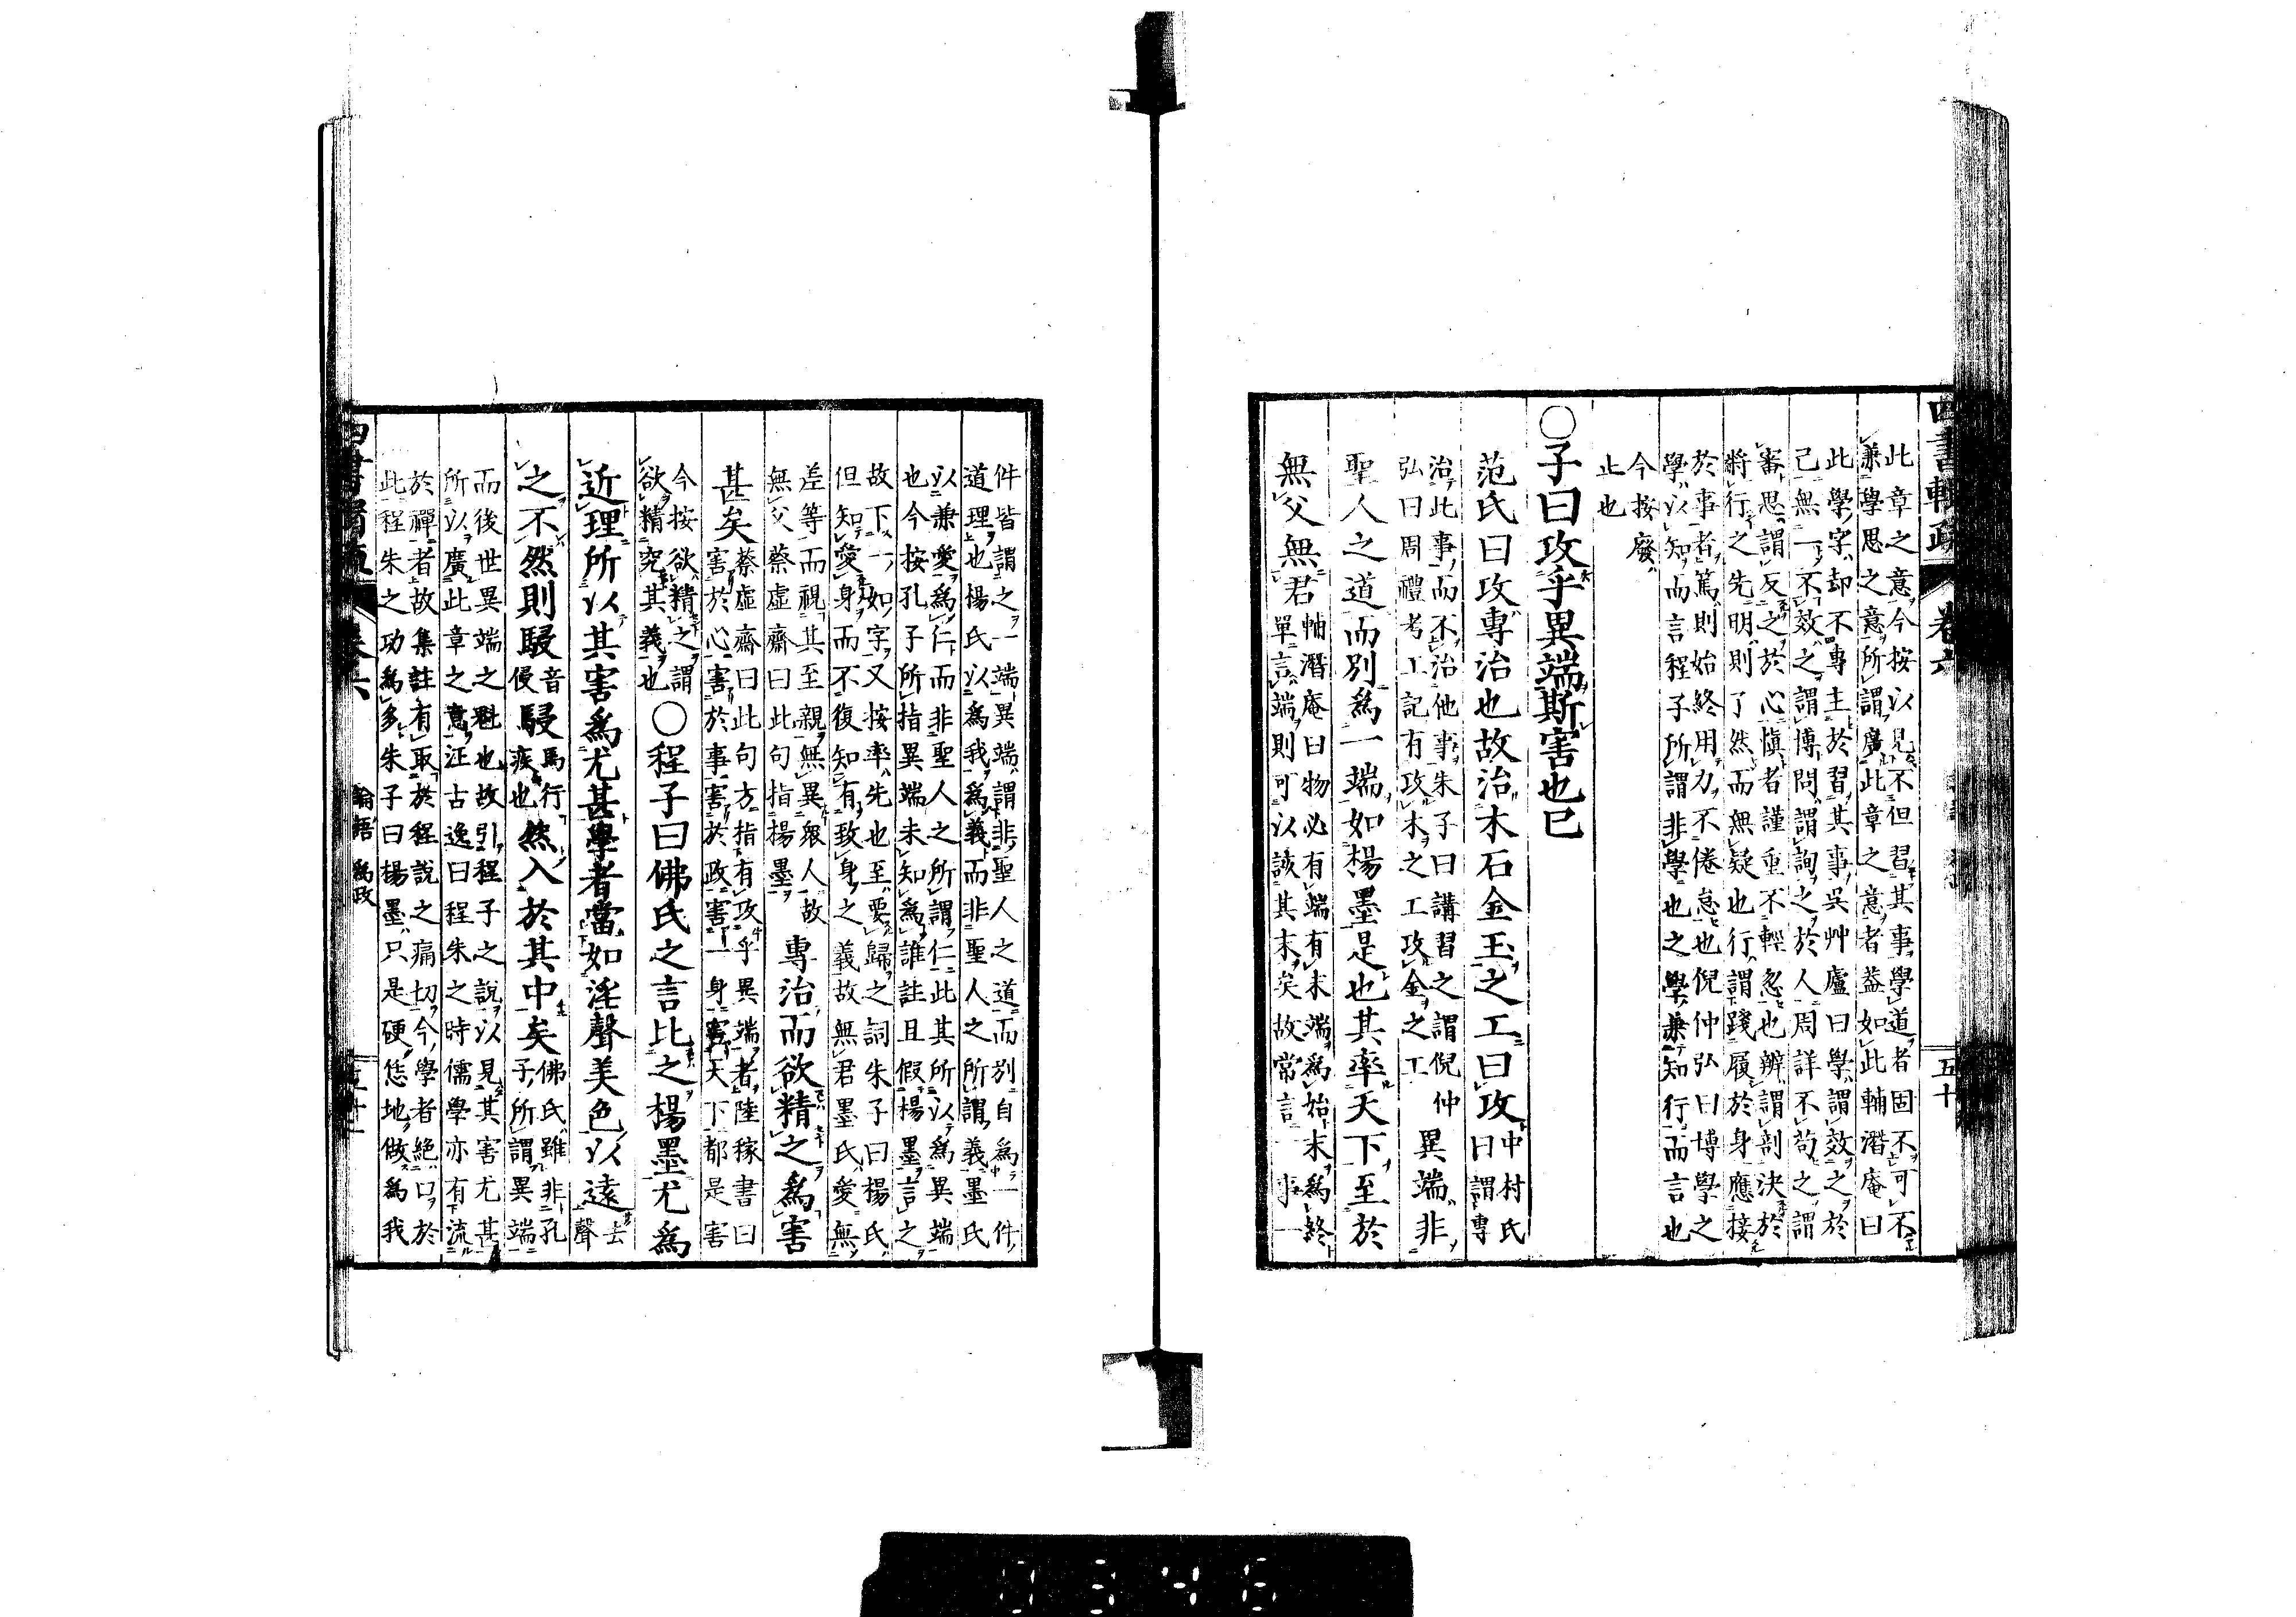 四書輯疏 卷六 五十
此章之意今按以見不但習其事學道者固不可不
兼學思之意所謂廣此章之意者葢如此輔潛庵曰
此學字却不專主於習其事吳艸廬曰學謂效之於
己無一不效之謂博問謂詢之於人周詳不苟之謂
審思謂反之於心愼者謹重不輕忽也辨謂剖決於
將行之先明則了然而無疑也行謂踐履於身應接
於事者篤則始終用力不倦怠也倪仲弘曰博學之
學以知而言程子所謂非學也之學兼知行而言也
今按廢
止也
○子曰攻乎異端斯害也已
范氏曰攻專治也故治木石金玉之工曰攻
中村氏
曰謂專
治此事而不治他事朱子曰講習之謂倪仲
弘曰周禮考工記有攻木之工攻金之工
異端非
聖人之道而別爲一端如楊墨是也其率天下至於
無父無君
輔潛庵曰物必有端有末端爲始末爲終
單言端則可以該其末矣故常言一事一
件皆謂之一端異端謂非聖人之道而別自爲一件
道理也楊氏以爲我爲義而非聖人之所謂義墨氏
以兼愛爲仁而非聖人之所謂仁此其所以爲異端
也今按孔子所指異端未知爲誰註且假楊墨言之
故下一如字又按率先也至要歸之詞朱子曰楊氏
但知愛身而不復知有致身之義故無君墨氏愛無
差等而視其至親無異衆人故
無父蔡虛齋曰此句指楊墨
專治而欲精之爲害
甚矣
蔡虛齋曰此句方指有攻乎異端者陸稼書曰
害於心害於事害於政害一身害天下都是害
今按欲精之謂
欲精究其義也
○程子曰佛氏之言比之楊墨尤爲
近理所以其害爲尤甚學者當如淫聲美色以遠
去
聲
之不然則駸
音
侵
駸
馬行
疾也
然入於其中矣
佛氏雖非孔
子所謂異端
而後世異端之魁也故引程子之說以見其害尤甚
所以廣此章之意汪古逸曰程朱之時儒學亦有流
於禪者故集註有取於程說之痛切今學者絕口於
此程朱之功爲多朱子曰楊墨只是硬恁地做爲我
四書輯疏 卷六 論語 爲政